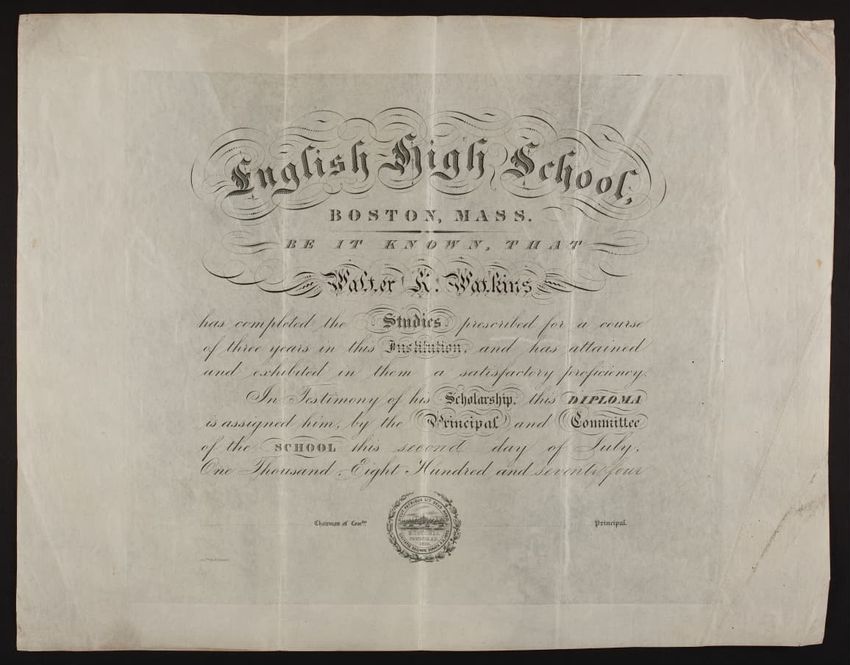 English High School,
BOSTON, MASS.
BE IT KNOWN, THAT
Walter K. Watkins
has completed the Studies prescribed for a course
of three years in this Institution, and has attained
and exhibited in them a satisfactory proficiency.
In Testimony of his Scholarship, this DIPLOMA
is assigned him, by the Principal and Committee
of the SCHOOL this second day of July,
One Thousand, Eight Hundred and seventy four
Chairman of Comtee. Principal.